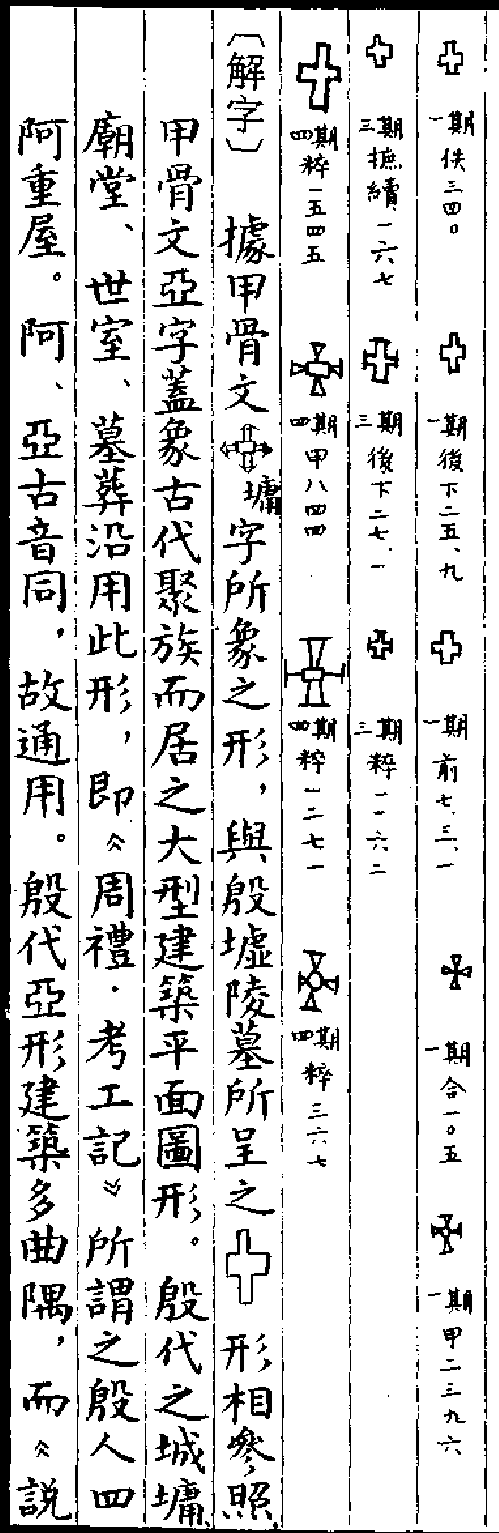 一期 佚三四〇
一期 後下二五、九
一期 前七、三、一
一期 合一〇五
一期 甲二三九六
三期 摭續一六七
三期 後下二七、一
三期 粹一一六二
四期 粹一五四五
四期 甲八四四
四期 粹一二七一
四期 粹三六七
〔解字〕 據甲骨文 墉字所象之形，與殷墟陵墓所呈之 形相參照，
甲骨文亞字蓋象古代聚族而居之大型建築平面圖形。殷代之城墉、
廟堂、世室、墓葬沿用此形，即《周禮·考工記》所謂之殷人四
阿重屋。阿、亞古音同，故通用。殷代亞形建築多曲隅，而《說